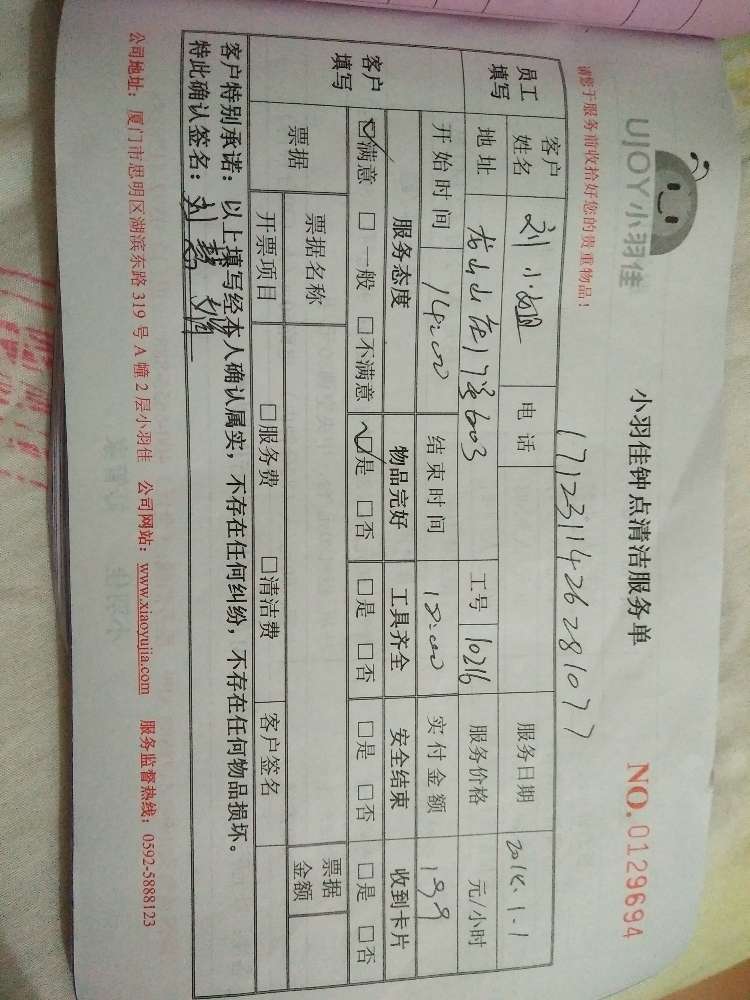 UJOY小羽佳
小羽佳钟点清洁服务单
NO.0129694
请您于服务前收拾好您的贵重物品！
1712311426281077
员工填写 客户姓名 刘小姐 电话 服务日期
地址 龙山山庄17 603 工号 10216 服务价格 元/小时
开始时间 14:00 结束时间 18:00 实付金额 199
客户填写 服务态度 物品完好 工具齐全 安全结束 收到卡片
☑满意 □一般 □不满意 ☑是 □否 □是 □否 □是 □否 □是 □否
票据 票据名称 票据金额
开票项目 □服务费 □清洁费 客户签名
客户特别承诺：以上填写经本人确认属实，不存在任何纠纷，不存在任何物品损坏。
特此确认签名：刘
公司地址：厦门市思明区湖滨东路 319 号 A 幢 2 层小羽佳 公司网站：www.xiaoyujia.com 服务监督热线：0592-5888123